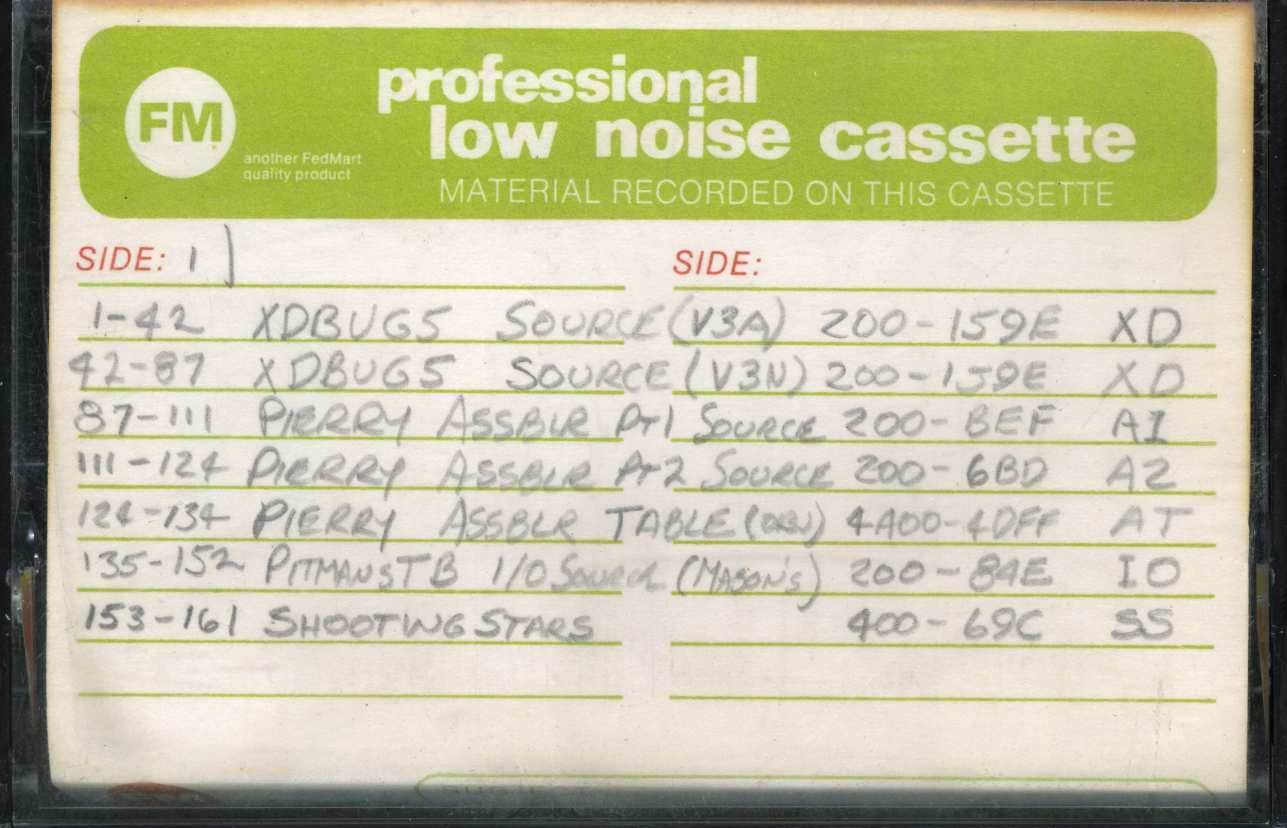 FM
another FedMart
quality product
professional
low noise cassette
MATERIAL RECORDED ON THIS CASSETTE
SIDE: 1 SIDE:
1-42 XDBUG5 SOURCE (V3A) 200-159E XD
42-87 XDBUG5 SOURCE (V3N) 200-159E XD
87-111 PIERRY ASSBLR Pt1 SOURCE 200-BEF A1
111-124 PIERRY ASSBLR Pt2 SOURCE 200-6BD A2
124-134 PIERRY ASSBLR TABLE 4A00-4DFF AT
135-152 PITMANSTB I/O SOURCE (MASON'S) 200-84E IO
153-161 SHOOTING STARS 400-69C SS